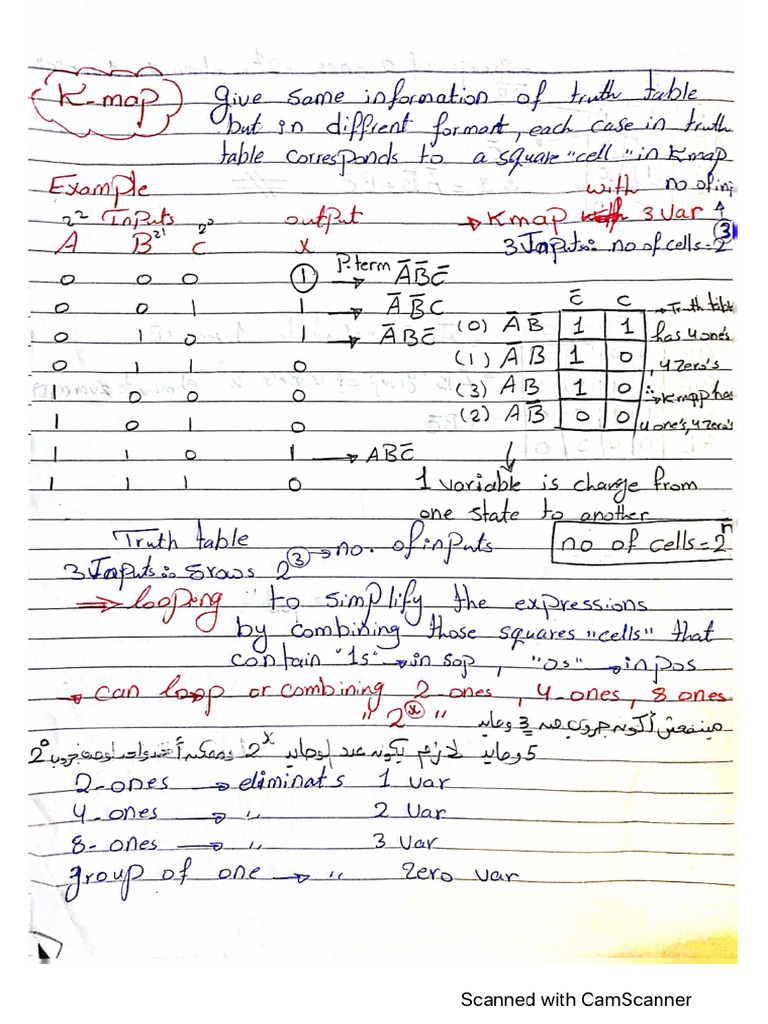 K-map give same information of truth table
but in diffrent formart, each case in truth
table corresponds to a square "cell" in Kmap
Example with no of inp
2² Inputs 2⁰ output → Kmap 3 var ↑
A B 2¹ C x 3 Inputs ∴ no of cells = 2③
0 0 0 ① P.term → A̅B̅C̅
C̅ C
0 0 1 1 → A̅B̅C → Truth tabl
0 1 0 1 → A̅BC̅ (0) A̅ B̅ 1 1 has 4 one's
0 1 1 0 (1) A̅ B 1 0 , 4 zero's
1 0 0 0 (3) AB 1 0 ∴ → Kmap has
1 0 1 0 (2) AB̅ 0 0 4 one's, 4 zero's
1 1 0 1 → ABC̅ ↓
1 1 1 0 1 variable is change from
one state to another
Truth table no of cells = 2ⁿ
3 Inputs ∴ 8 rows 2③ → no. of inputs
⇒ looping to simplify the expressions
by combining those squares "cells" that
contain "1s" → in sop, "0s" → in pos
→ can loop or combining 2-ones, 4-ones, 8 ones
" 2ⓧ "
مينفعش أكون جروب من 3 وحايد
5 وحايد لازم يكون عدد الوحايد 2ˣ
2⁰
2-ones → eliminats 1 var
4-ones → " 2 var
8-ones → " 3 var
group of one → " zero var
Scanned with CamScanner